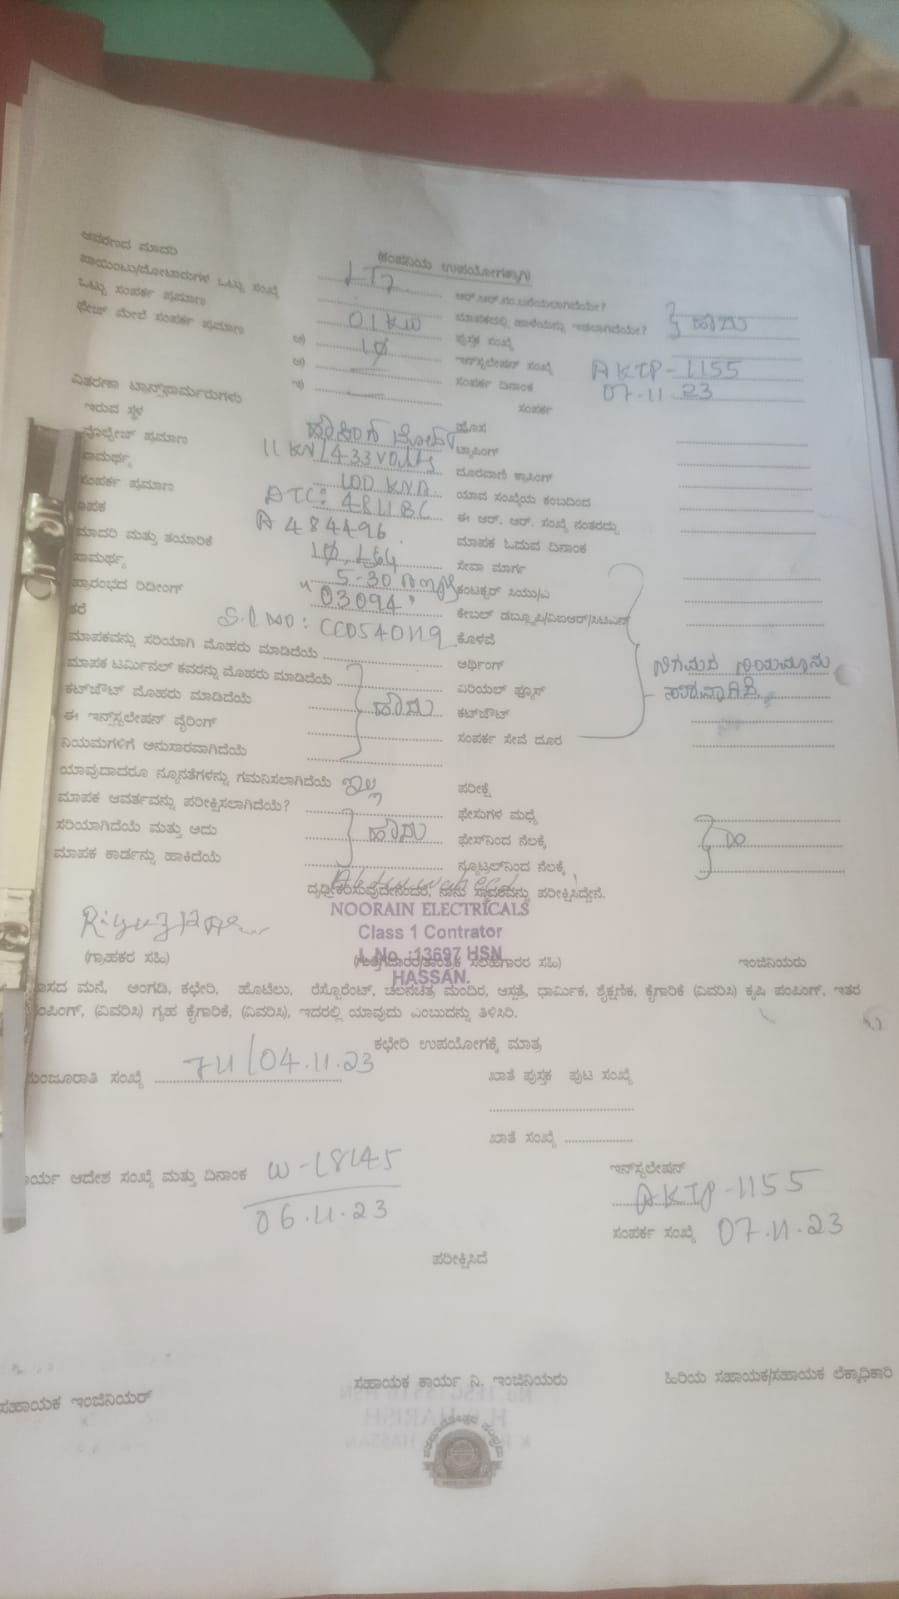 ಆವರಣದ ಮಾದರಿ
(ಕಂಪನಿಯ ಉಪಯೋಗಕ್ಕಾಗಿ)
ಒಟ್ಟು ಸಂಖ್ಯೆ LT7
ಒಟ್ಟು ಸಂಪರ್ಕ ಪ್ರಮಾಣ
ಹೌದು
ಫೇಜ್ ಮೇಲೆ ಸಂಪರ್ಕ ಪ್ರಮಾಣ 01KW ಪುಸ್ತಕ ಸಂಖ್ಯೆ
ಅ) 1φ ಇನ್‌ಸ್ಟಲೇಷನ್ ಸಂಖ್ಯೆ AKTP-1155
ಆ) ಸಂಪರ್ಕ ದಿನಾಂಕ 07.11.23
ಇ) ಸಂಪರ್ಕ
ವಿತರಣಾ ಟ್ರಾನ್ಸ್‌ಫಾರ್ಮರುಗಳು
ಇರುವ ಸ್ಥಳ ಹೊಸ
ವೋಲ್ಟೇಜ್ ಪ್ರಮಾಣ ಟ್ಯಾಪಿಂಗ್
ಸಾಮರ್ಥ್ಯ 11 KV/433 Volts
ಸಂಪರ್ಕ ಪ್ರಮಾಣ 100 KVA
ಮಾಪಕ 4811BC ಈ ಆರ್. ಆರ್. ಸಂಖ್ಯೆ ನಂತರದ್ದು
ಮಾದರಿ ಮತ್ತು ತಯಾರಿಕೆ A 484496 ಮಾಪಕ ಓದುವ ದಿನಾಂಕ
ಸಾಮರ್ಥ್ಯ 1φ, L&G ಸೇವಾ ಮಾರ್ಗ
ಪ್ರಾರಂಭದ ರಿಡಿಂಗ್ 5-30 Amps
ತರೆ "03094" ಕೇಬಲ್
S.l no: CC0540119 ಕೊಳವೆ
ಮಾಪಕವನ್ನು ಸರಿಯಾಗಿ ಮೊಹರು ಮಾಡಿದೆಯೆ ಅರ್ಥಿಂಗ್
ಮಾಪಕ ಟರ್ಮಿನಲ್ ಕವರನ್ನು ಮೊಹರು ಮಾಡಿದೆಯೆ ಏರಿಯಲ್ ಫ್ಯೂಸ್ ನಿಗಮದ ನಿಯಮಾನು
ಕಟ್‌ಔಟ್ ಮೊಹರು ಮಾಡಿದೆಯೆ ಹೌದು ಕಟ್‌ಔಟ್ ಸಾರವಾಗಿದೆ.
ಈ ಇನ್‌ಸ್ಟಲೇಷನ್ ವೈರಿಂಗ್ ಸಂಪರ್ಕ ಸೇವೆ ದೂರ
ನಿಯಮಗಳಿಗೆ ಅನುಸಾರವಾಗಿದೆಯೆ
ಯಾವುದಾದರೂ ನ್ಯೂನತೆಗಳನ್ನು ಗಮನಿಸಲಾಗಿದೆಯೆ ಇಲ್ಲ ಪರೀಕ್ಷೆ
ಮಾಪಕ ಆವರ್ತವನ್ನು ಪರೀಕ್ಷಿಸಲಾಗಿದೆಯೆ? ಫೇಸುಗಳ ಮಧ್ಯೆ
ಸರಿಯಾಗಿದೆಯೆ ಮತ್ತು ಅದು ಹೌದು ಫೇಸ್‌ನಿಂದ ನೆಲಕ್ಕೆ DO
ಮಾಪಕ ಕಾರ್ಡನ್ನು ಹಾಕಿದೆಯೆ ನ್ಯೂಟ್ರಲ್‌ನಿಂದ ನೆಲಕ್ಕೆ
ದೃಢೀಕರಿಸುವುದೇನೆಂದರೆ, ನಾನು ಸ್ಥಾವರವನ್ನು ಪರೀಕ್ಷಿಸಿದ್ದೇನೆ.
NOORAIN ELECTRICALS
Class 1 Contrator
L.No. :13697 HSN
HASSAN.
(ಗ್ರಾಹಕರ ಸಹಿ) (ಗುತ್ತಿಗೆದಾರರ/ತಾಂತ್ರಿಕ ಸಲಹೆಗಾರರ ಸಹಿ) ಇಂಜಿನಿಯರು
ವಾಸದ ಮನೆ, ಅಂಗಡಿ, ಕಛೇರಿ, ಹೊಟೆಲು, ರೆಸ್ಟೊರೆಂಟ್, ಚಲನಚಿತ್ರ ಮಂದಿರ, ಆಸ್ಪತ್ರೆ, ಧಾರ್ಮಿಕ, ಶೈಕ್ಷಣಿಕ, ಕೈಗಾರಿಕೆ (ವಿವರಿಸಿ) ಕೃಷಿ ಪಂಪಿಂಗ್, ಇತರ
ಪಂಪಿಂಗ್, (ವಿವರಿಸಿ) ಗೃಹ ಕೈಗಾರಿಕೆ, (ವಿವರಿಸಿ), ಇದರಲ್ಲಿ ಯಾವುದು ಎಂಬುದನ್ನು ತಿಳಿಸಿರಿ.
ಕಛೇರಿ ಉಪಯೋಗಕ್ಕೆ ಮಾತ್ರ
ಮಂಜೂರಾತಿ ಸಂಖ್ಯೆ 711/04.11.23 ಖಾತೆ ಪುಸ್ತಕ ಪುಟ ಸಂಖ್ಯೆ
ಖಾತೆ ಸಂಖ್ಯೆ
ಕಾರ್ಯ ಆದೇಶ ಸಂಖ್ಯೆ ಮತ್ತು ದಿನಾಂಕ W-18145 ಇನ್‌ಸ್ಟಲೇಷನ್
06.11.23 AKTP-1155
ಸಂಪರ್ಕ ಸಂಖ್ಯೆ 07.11.23
ಪರೀಕ್ಷಿಸಿದೆ
ಸಹಾಯಕ ಇಂಜಿನಿಯರ್ ಸಹಾಯಕ ಕಾರ್ಯ ನಿ. ಇಂಜಿನಿಯರು ಹಿರಿಯ ಸಹಾಯಕ/ಸಹಾಯಕ ಲೆಕ್ಕಾಧಿಕಾರಿ